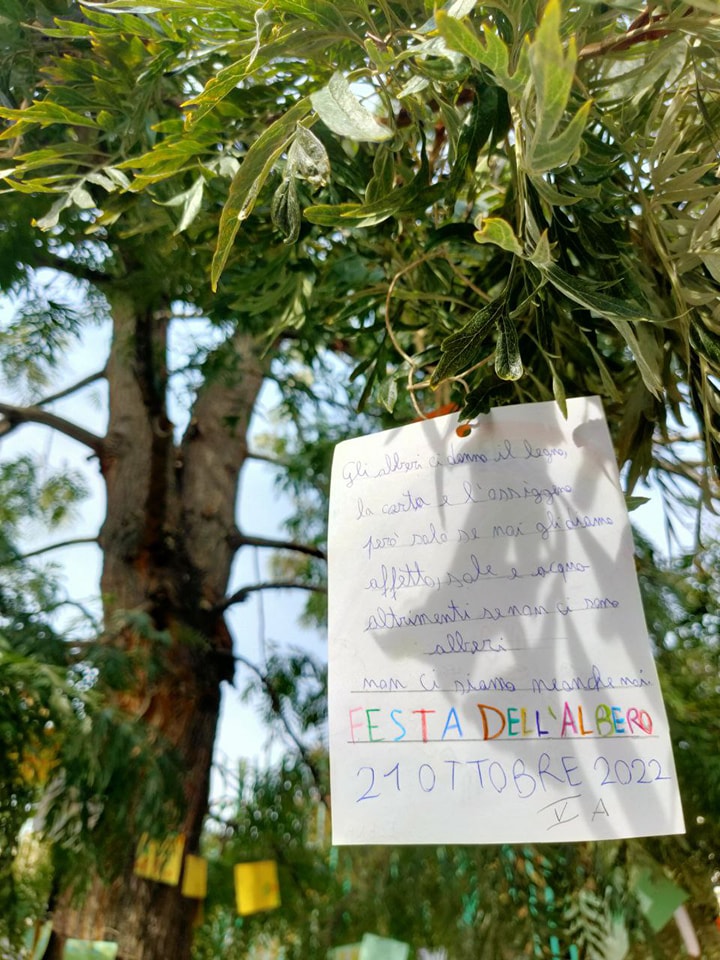 Gli alberi ci danno il legno,
la carta e l'ossigeno
però solo se noi gli diamo
affetto, sole e acqua
altrimenti se non ci sono
alberi
non ci siamo neanche noi.
FESTA DELL'ALBERO
21 OTTOBRE 2022
V A